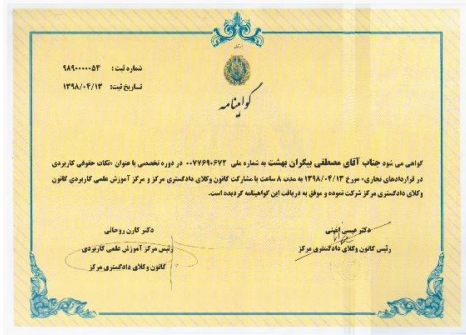 شماره ثبت: ۹۸۹۰۰۰۰۰۵۴
تاریخ ثبت: ۱۳۹۸/۰۴/۱۳
گواهینامه
گواهی می شود جناب آقای مصطفی بیگران بهشت به شماره ملی ۰۰۷۷۶۹۰۶۷۲ در دوره تخصصی با عنوان «نکات حقوقی کاربردی
در قراردادهای تجاری» مورخ ۱۳۹۸/۰۴/۱۳ به مدت ۸ ساعت با مشارکت کانون وکلای دادگستری مرکز و مرکز آموزش علمی کاربردی کانون
وکلای دادگستری مرکز شرکت نموده و موفق به دریافت این گواهینامه گردیده است.
دکتر عیسی امینی
رئیس کانون وکلای دادگستری مرکز
دکتر کارن روحانی
رئیس مرکز آموزش علمی کاربردی
کانون وکلای دادگستری مرکز